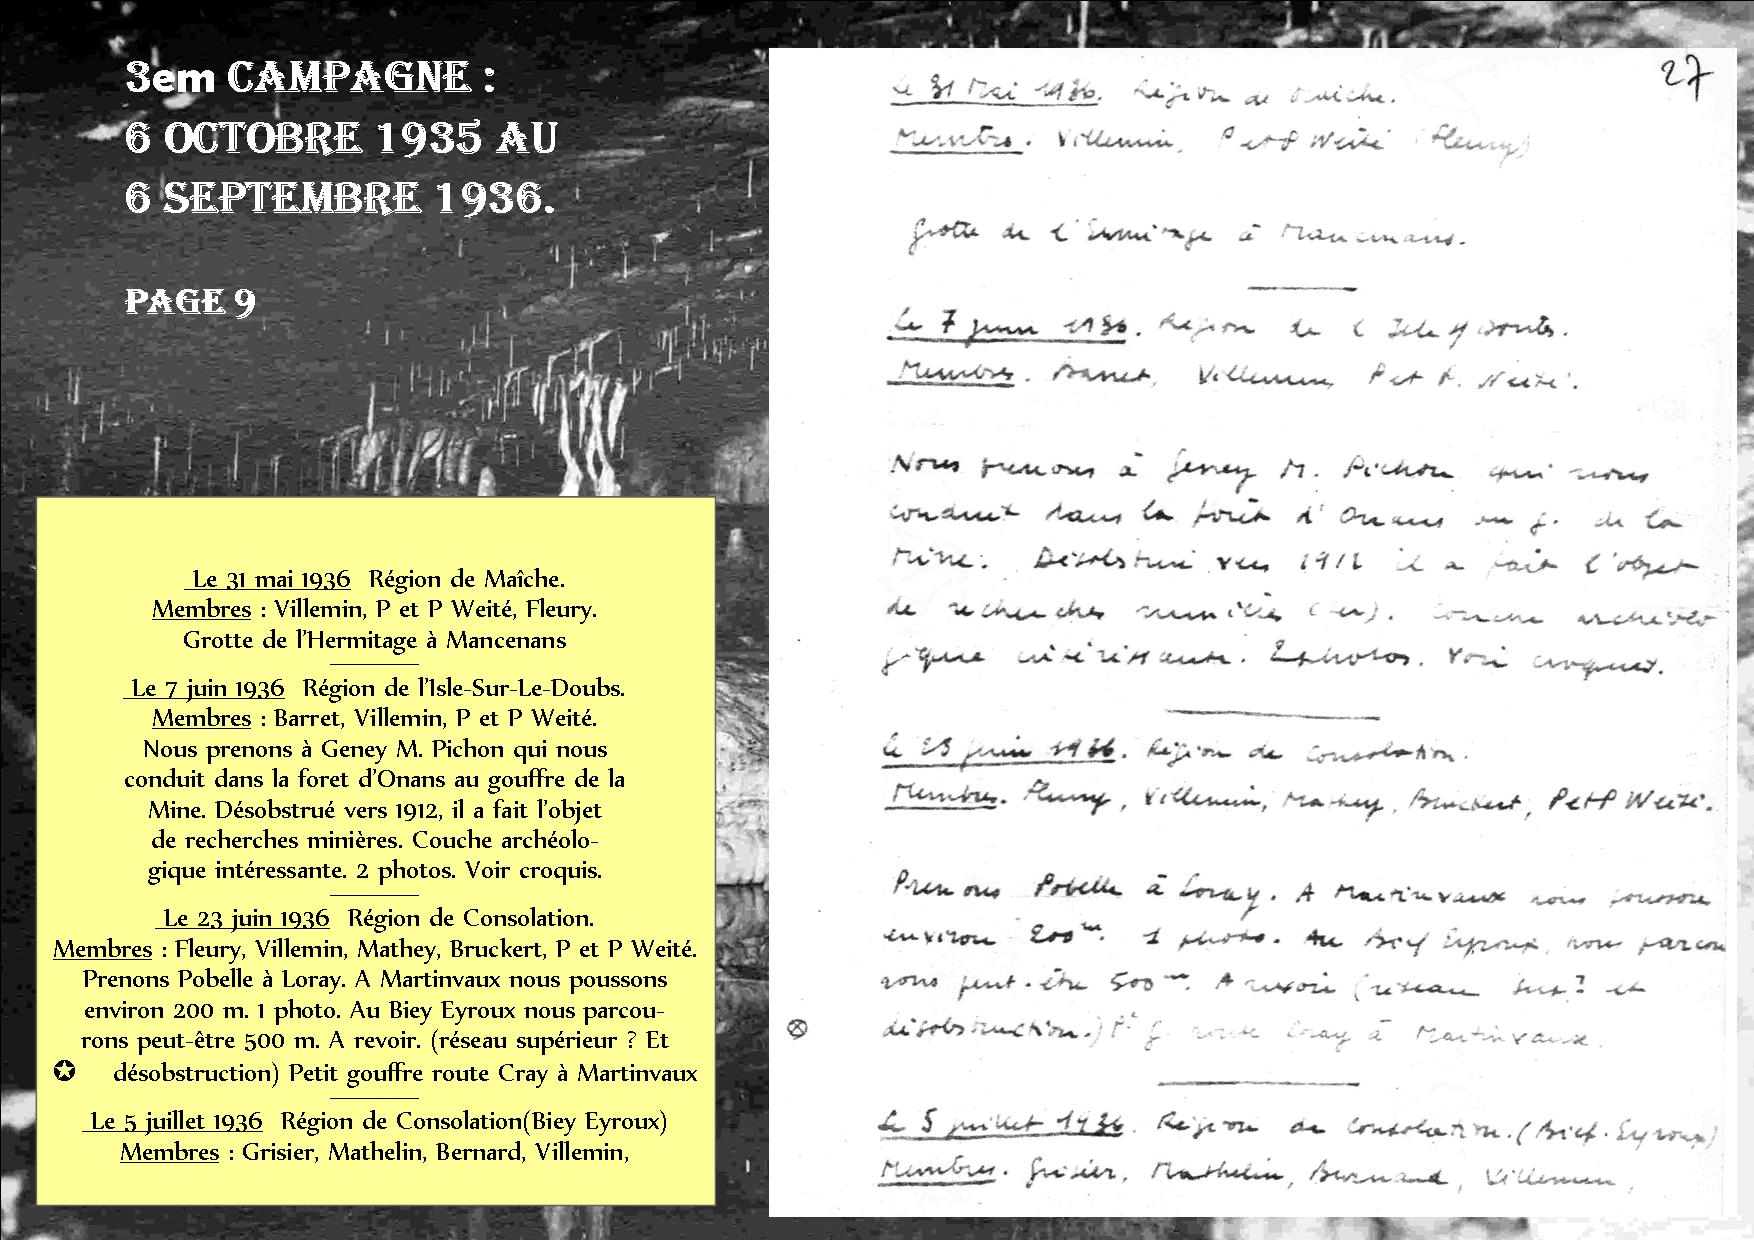 3em CAMPAGNE :
6 OCTOBRE 1935 AU
6 SEPTEMBRE 1936.
PAGE 9
Le 31 mai 1936 Région de Maîche.
Membres : Villemin, P et P Weité, Fleury.
Grotte de l'Hermitage à Mancenans
Le 7 juin 1936 Région de l'Isle-Sur-Le-Doubs.
Membres : Barret, Villemin, P et P Weité.
Nous prenons à Geney M. Pichon qui nous
conduit dans la foret d'Onans au gouffre de la
Mine. Désobstrué vers 1912, il a fait l'objet
de recherches minières. Couche archéolo-
gique intéressante. 2 photos. Voir croquis.
Le 23 juin 1936 Région de Consolation.
Membres : Fleury, Villemin, Mathey, Bruckert, P et P Weité.
Prenons Pobelle à Loray. A Martinvaux nous poussons
environ 200 m. 1 photo. Au Biey Eyroux nous parcou-
rons peut-être 500 m. A revoir. (réseau supérieur ? Et
✪ désobstruction) Petit gouffre route Cray à Martinvaux
Le 5 juillet 1936 Région de Consolation(Biey Eyroux)
Membres : Grisier, Mathelin, Bernard, Villemin,
27
Le 31 Mai 1936. Région de Maiche.
Membres. Villemin, P et P Weité (Fleury)
Grotte de l'Ermitage à Mancenans.
Le 7 juin 1936. Région de l'Isle s/ Doubs.
Membres. Barret, Villemin, P et P. Weité.
Nous prenons à Geney M. Pichon qui nous
conduit dans la forêt d'Onans au g. de la
Mine. Désobstrué vers 1912 il a fait l'objet
de recherches minières (). Couche archéolo
gique intéressante. 2 photos. Voir croquis.
Le 23 juin 1936. Région de Consolation.
Membres. Fleury, Villemin, Mathey, Bruckert, P et P Weité.
Prenons Pobelle à Loray. A Martinvaux nous poussons
environ 200 m. 1 photo. Au Bief Eyroux, nous parcou
rons peut-être 500 m. A revoir (réseau sup.? et
⊗ désobstruction.) Pt g. route Cray à Martinvaux.
Le 5 juillet 1936. Région de Consolation. (Bief-Eyroux)
Membres. Grisier, Mathelin, Bernard, Villemin,